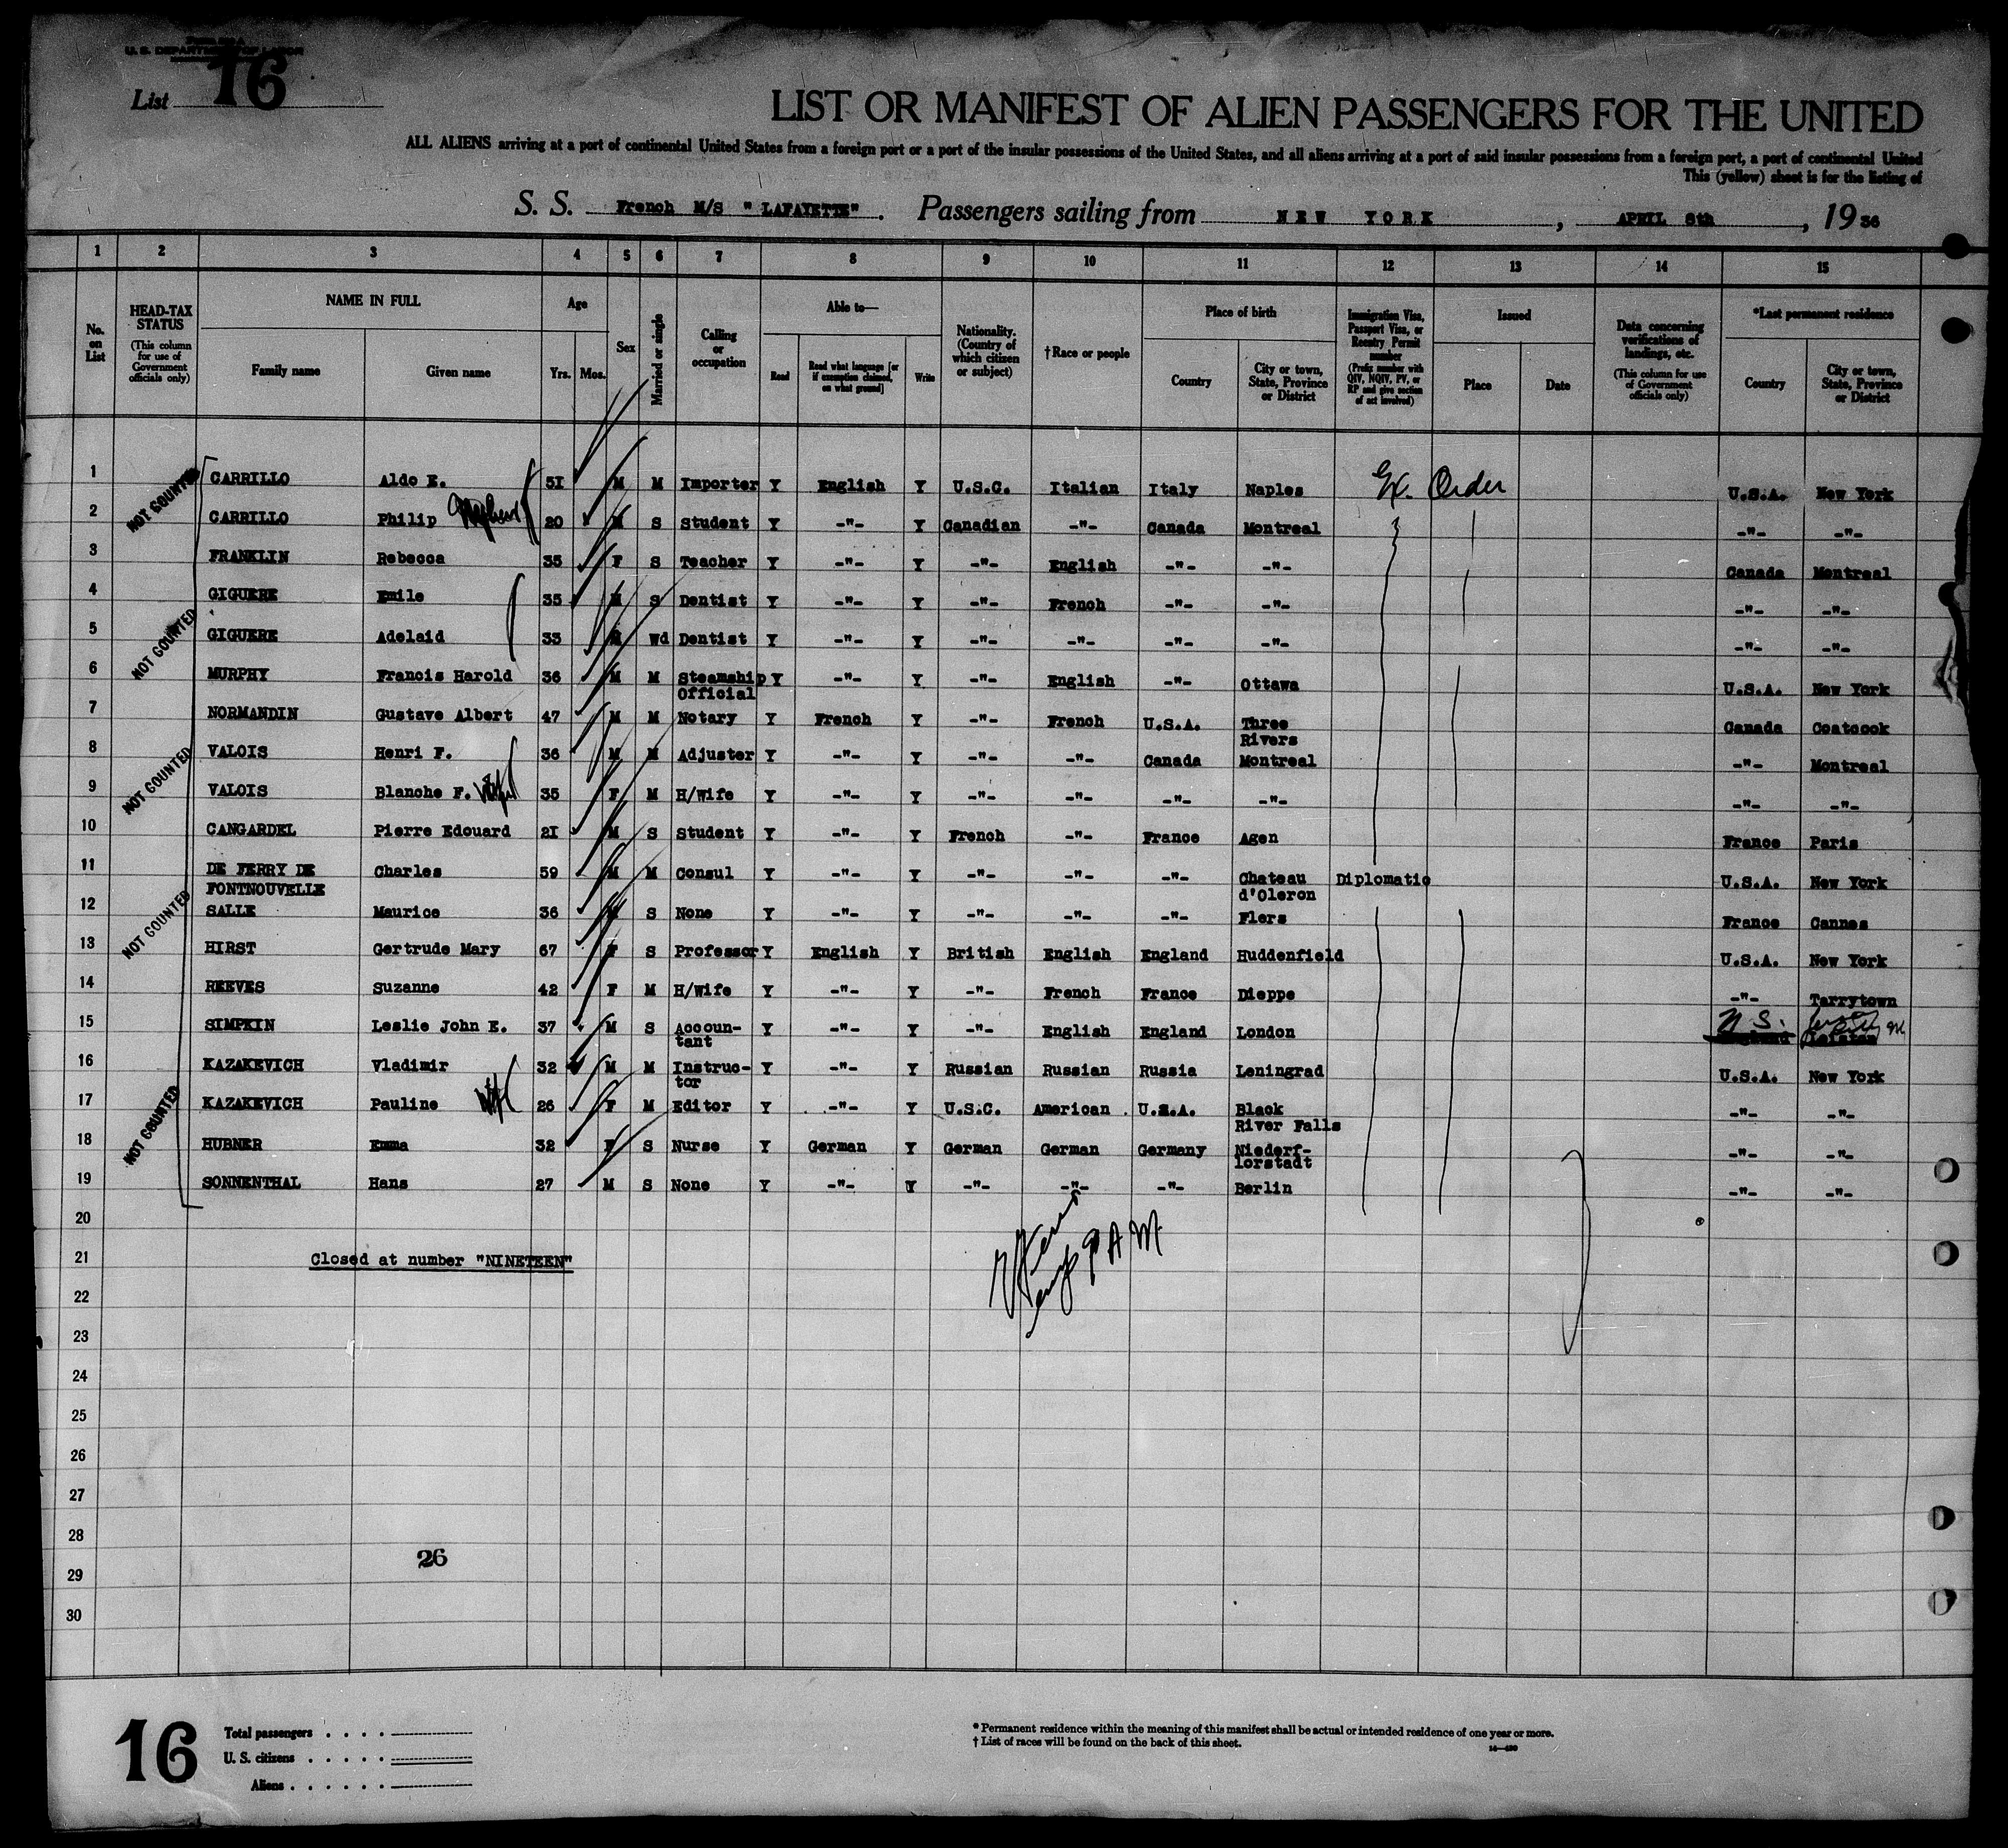 U. S. DEPARTMENT OF LABOR
List 16
LIST OR MANIFEST OF ALIEN PASSENGERS FOR THE UNITED
ALL ALIENS arriving at a port of continental United States from a foreign port or a port of the insular possessions of the United States, and all aliens arriving at a port of said insular possessions from a foreign port, a port of continental United
This (yellow) sheet is for the listing of
S. S. French M/S " LAFAYETTE" . Passengers sailing from NEW YORK , APRIL 8th , 19 36
1 2 3 4 5 6 7 8 9 10 11 12 13 14 15
No. on List
HEAD-TAX STATUS (This column for use of Government officials only)
NAME IN FULL
Family name
Given name
Age
Yrs. Mos.
Sex
Married or single
Calling or occupation
Able to—
Read
Read what language [or if exemption claimed, on what ground]
Write
Nationality. (Country of which citizen or subject)
†Race or people
Place of birth
Country
City or town, State, Province or District
Immigration Visa, Passport Visa, or Reentry Permit number (Prefix number with QIV, NQIV, PV, or RP and give section of act involved)
Issued
Place
Date
Data concerning verifications of landings, etc. (This column for use of Government officials only)
*Last permanent residence
Country
City or town, State, Province or District
NOT COUNTED
1 CARRILLO Aldo E. 51 M M Importer Y English Y U.S.C. Italian Italy Naples Ex. Order U.S.A. New York
2 CARRILLO Philip 20 M S Student Y -"- Y Canadian -"- Canada Montreal -"- -"-
3 FRANKLIN Rebecca 35 F S Teacher Y -"- Y -"- English -"- -"- Canada Montreal
4 GIGUERE Emile 35 M S Dentist Y -"- Y -"- French -"- -"- -"- -"-
NOT COUNTED
5 GIGUERE Adelaid 33 Wd Dentist Y -"- Y -"- -"- -"- -"- -"- -"-
6 MURPHY Francis Harold 36 M M Steamship Official Y -"- Y -"- English -"- Ottawa U.S.A. New York
7 NORMANDIN Gustave Albert 47 M M Notary Y French Y -"- French U.S.A. Three Rivers Canada Coatcook
8 VALOIS Henri F. 36 M M Adjuster Y -"- Y -"- -"- Canada Montreal -"- Montreal
NOT COUNTED
9 VALOIS Blanche F. Wife 35 F M H/wife Y -"- Y -"- -"- -"- -"- -"- -"-
10 CANGARDEL Pierre Edouard 21 M S Student Y -"- Y French -"- France Agen France Paris
11 DE FERRY DE FONTNOUVELLE Charles 59 M M Consul Y -"- Y -"- -"- -"- Chateau d'Oleron Diplomatic U.S.A. New York
12 SALLE Maurice 36 S None Y -"- Y -"- -"- -"- Flers France Cannes
NOT COUNTED
13 HIRST Gertrude Mary 67 F S Professor Y English Y British English England Huddenfield U.S.A. New York
14 REEVES Suzanne 42 F M H/wife Y -"- Y -"- French France Dieppe -"- Tarrytown
15 SIMPKIN Leslie John E. 37 M S Accoun-tant Y -"- Y -"- English England London U.S.
16 KAZAKEVICH Vladimir 32 M M Instruc-tor Y -"- Y Russian Russian Russia Leningrad U.S.A. New York
17 KAZAKEVICH Pauline Wife 26 F M Editor Y -"- Y U.S.C. American U.S.A. Black River Falls -"- -"-
NOT COUNTED
18 HUBNER Emma 32 F S Nurse Y German Y German German Germany Niederf-lorstadt -"- -"-
19 SONNENTHAL Hans 27 M S None Y -"- Y -"- -"- -"- Berlin -"- -"-
20
21 Closed at number "NINETEEN"
22
23
24
25
26
27
28
26
29
30
16
Total passengers . . . .
U. S. citizens . . . . .
Aliens . . . . . .
* Permanent residence within the meaning of this manifest shall be actual or intended residence of one year or more.
† List of races will be found on the back of this sheet.